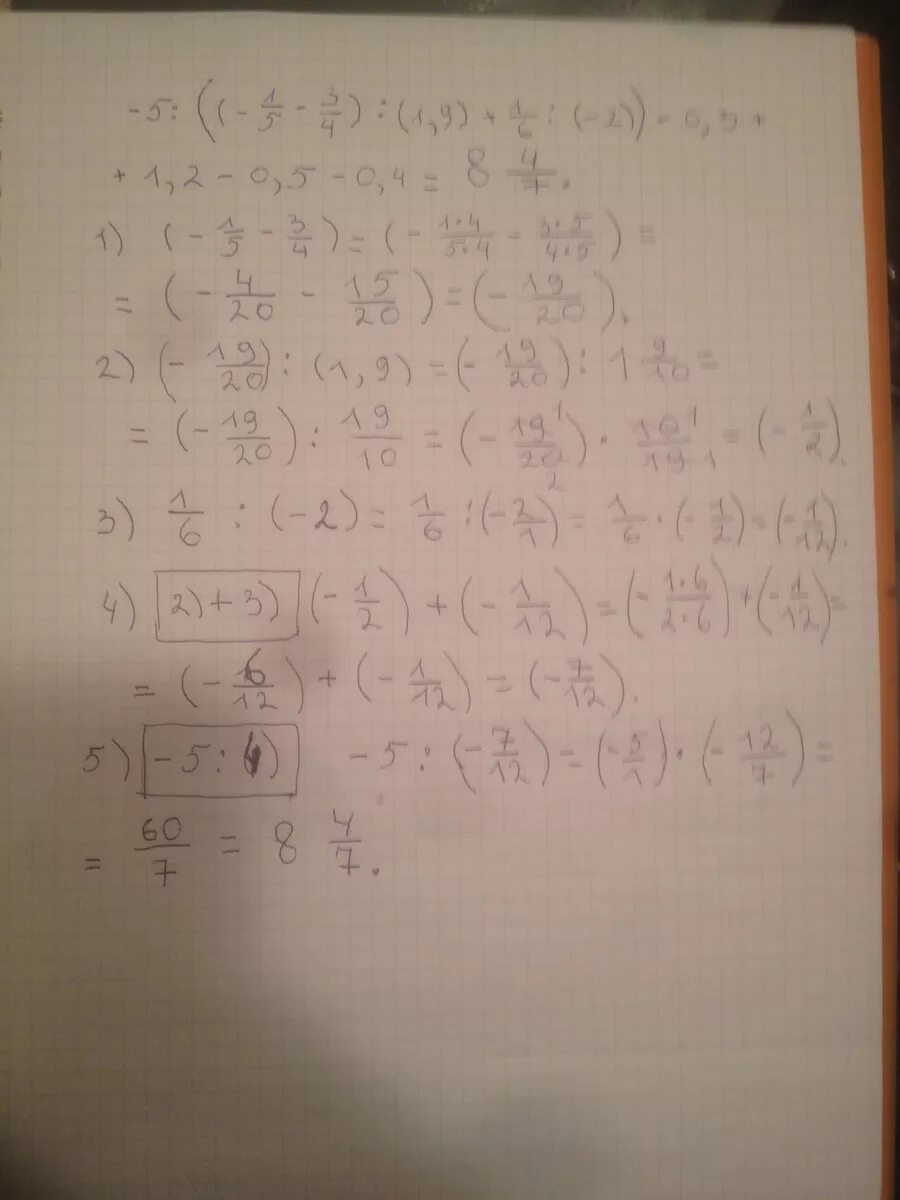 -5 : ((-1/5 - 3/4) : (1,9) + 1/6 : (-2)) = 0,9 +
+ 1,2 - 0,5 - 0,4 = 8 4/7.
1) (-1/5 - 3/4) = (-1·4/5·4 - 3·5/4·5) =
= (-4/20 - 15/20) = (-19/20).
2) (-19/20) : (1,9) = (-19/20) : 1 9/10 =
= (-19/20) : 19/10 = (-19¹/20₂) · 10¹/19₁ = (-1/2).
3) 1/6 : (-2) = 1/6 : (-2/1) = 1/6 · (-1/2) = (-1/12).
4) 2)+3) (-1/2) + (-1/12) = (-1·6/2·6) + (-1/12) =
= (-6/12) + (-1/12) = (-7/12).
5) -5 : 4) -5 : (-7/12) = (-5/1) · (-12/7) =
= 60/7 = 8 4/7.